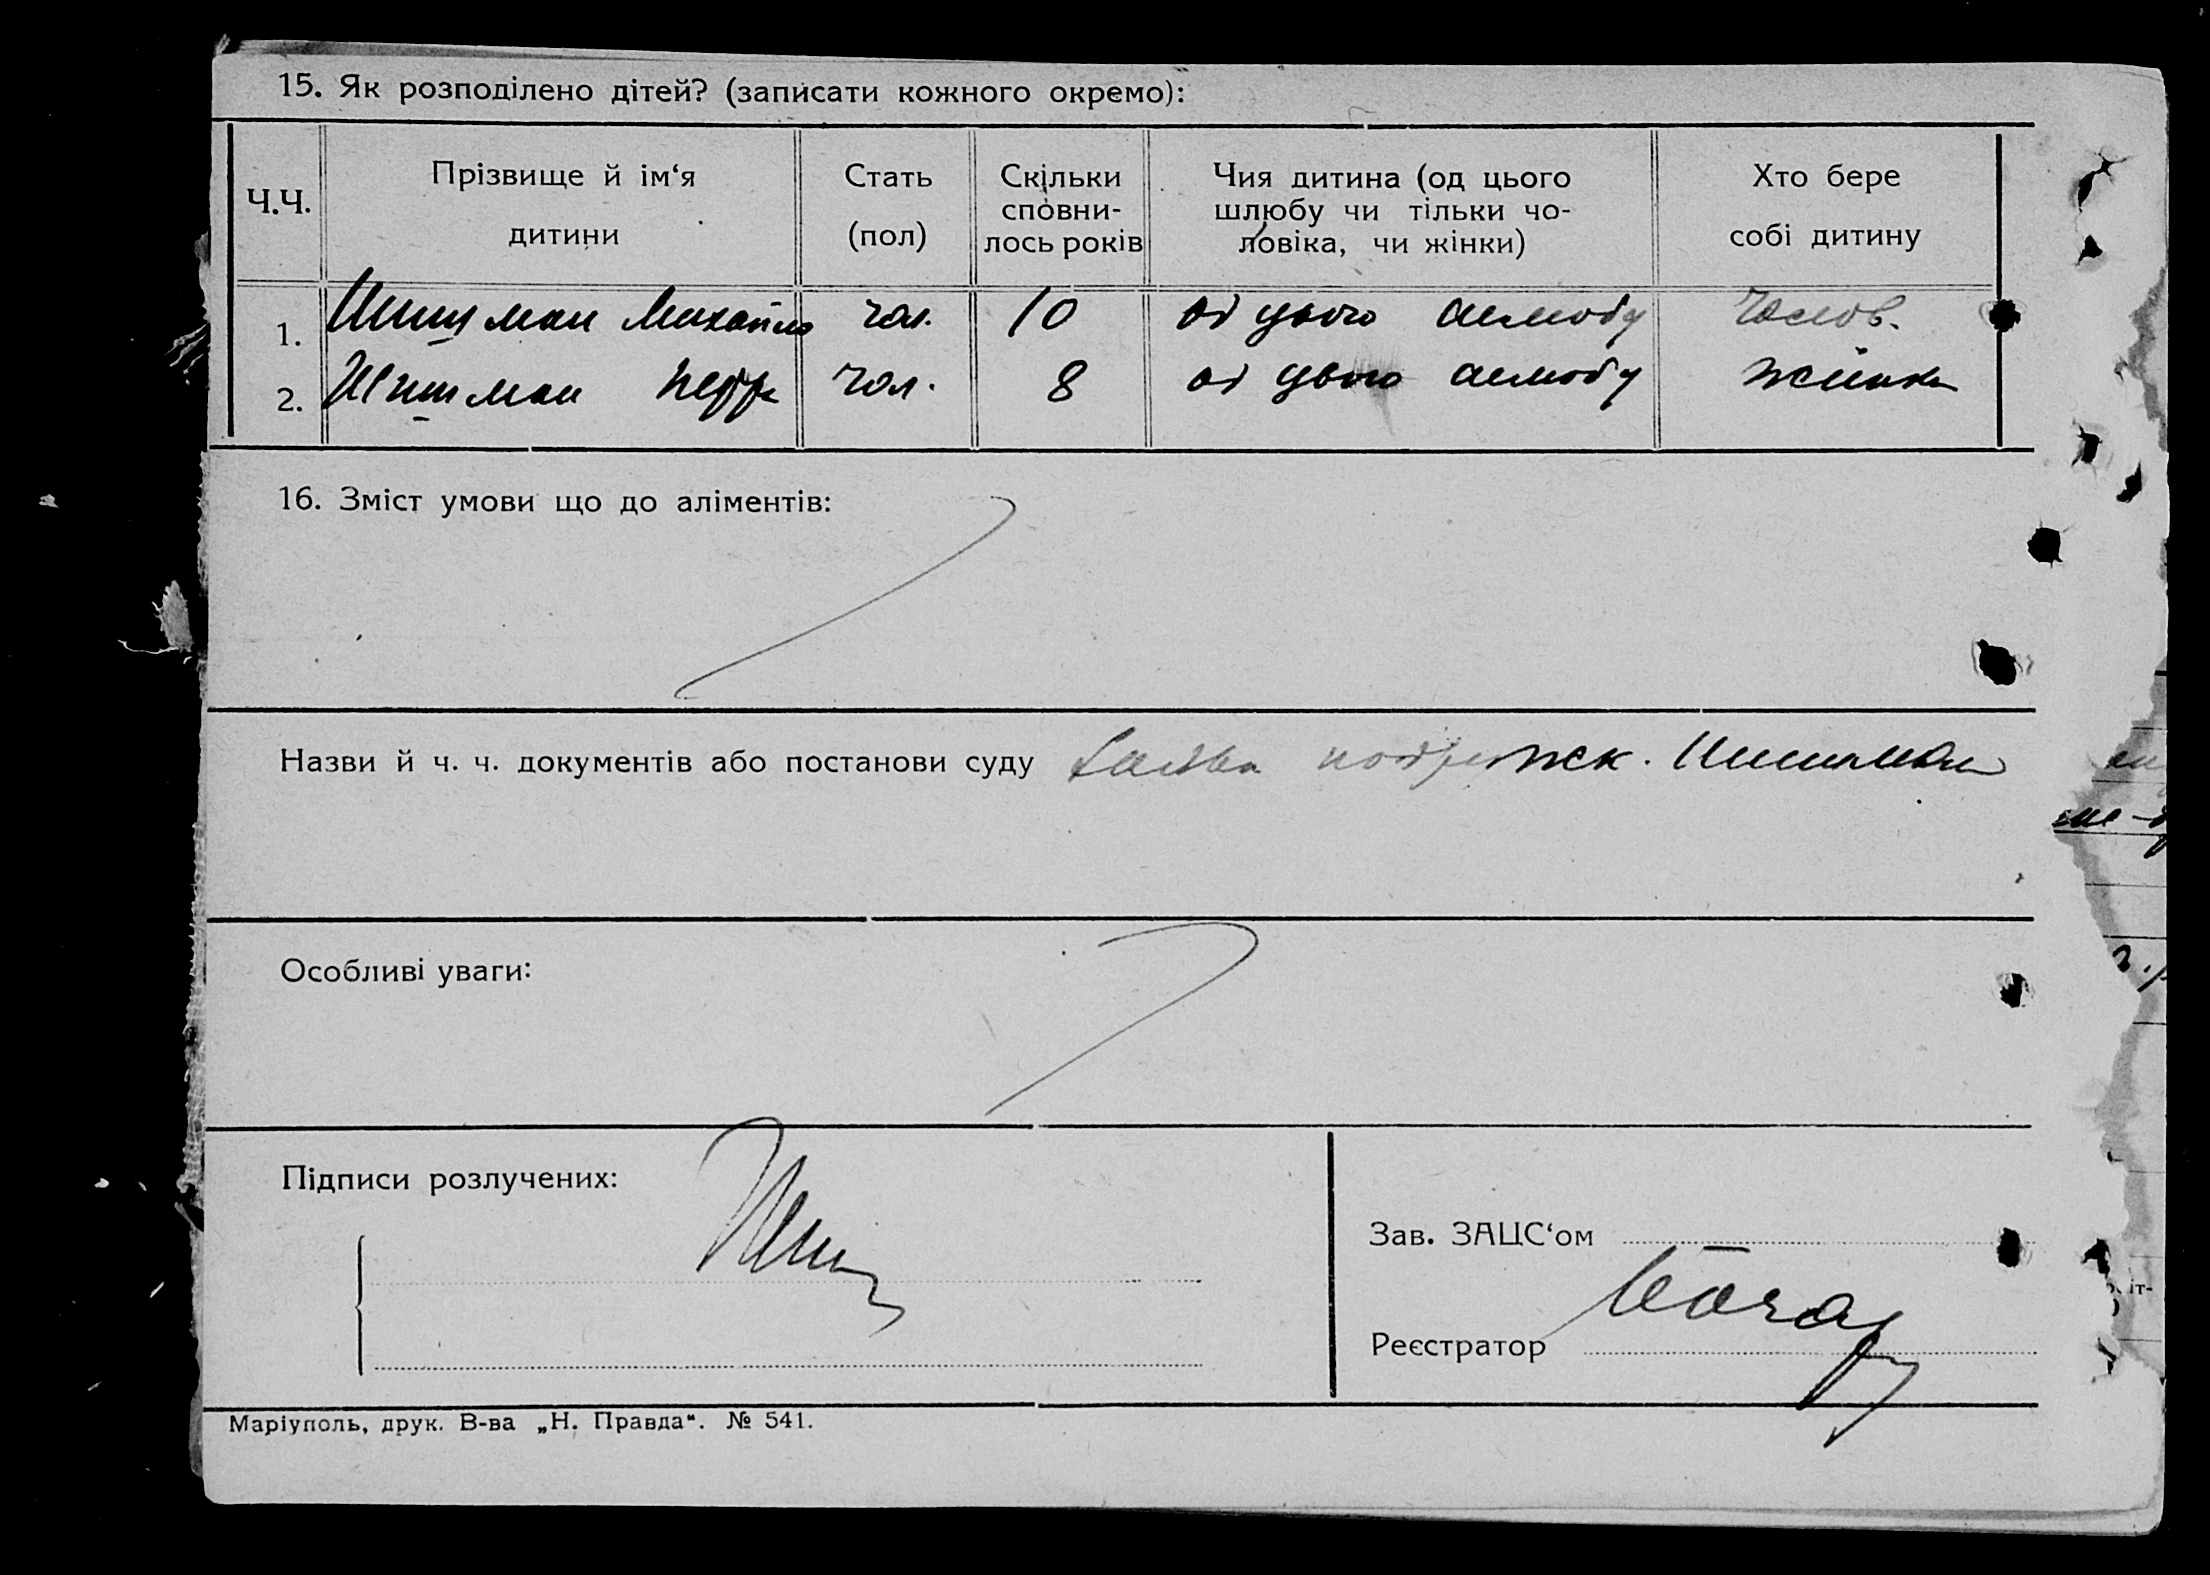 15. Як розподілено дітей? (записати кожного окремо):
Ч.Ч. Прізвище й ім‘я дитини Стать (пол) Скільки сповни-лось років Чия дитина (од цього шлюбу чи тільки чо-ловіка, чи жінки) Хто бере собі дитину
1. Шишман Михайло чол. 10 од цього шлюбу чолов.
2. Шишман Петро чол. 8 од цього шлюбу жінка
16. Зміст умови що до аліментів:
Назви й ч. ч. документів або постанови суду заява подруж. Шишман
Особливі уваги:
Підписи розлучених:
Зав. ЗАЦС‘ом
Реєстратор
Маріуполь, друк. В-ва „Н. Правда“. № 541.